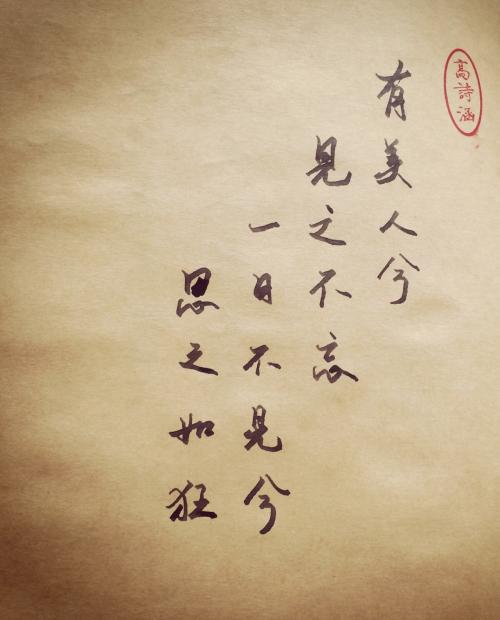 高詩涵
有美人兮
見之不忘
一日不見兮
思之如狂